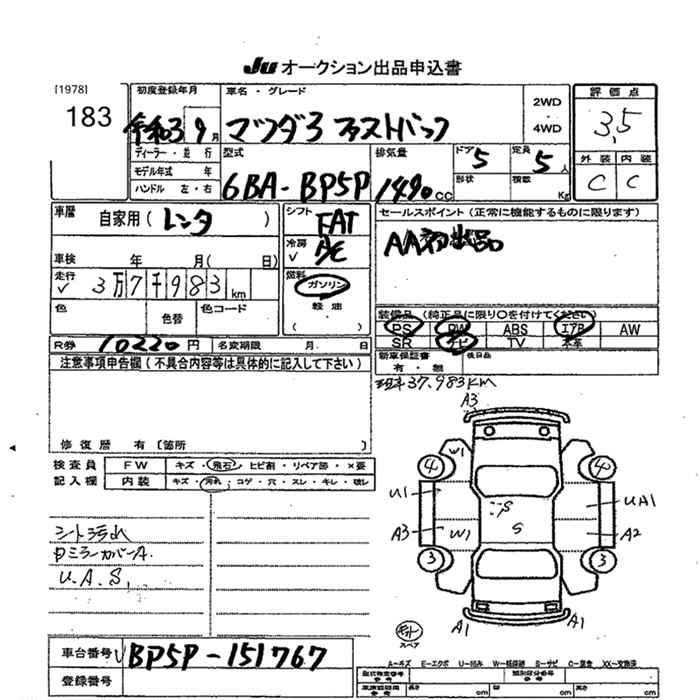 JU オークション出品申込書
[1978]
183
初度登録年月
令和3 9月
車名・グレード
マツダ3 ファストバック
2WD
・
4WD
評価点
3,5
ディーラー・並行
モデル年式 年
ハンドル 左・右
型式
6BA-BP5P
排気量
1490cc
ドア 5
定員 5人
形状
積数 Kg
外装 内装
C C
車歴
自家用(レンタ )
シフト
FAT
冷房
AC
セールスポイント(正常に機能するものに限ります)
AA初出品
車検 年 月( 日)
走行
3万7千983km
燃料
ガソリン
軽油
( )
色 色替 色コード
装備品(純正品に限り〇を付けてください)
PS PW ABS エアB AW
SR ナビ TV 本革
R券 10220円 名変期限 月 日
新車保証書
有・無
後日品
注意事項申告欄(不具合内容等は具体的に記入して下さい)
現車37,983km
修復歴 有〔箇所 〕
検査員
記入欄
FW キズ・飛石・ヒビ割・リペア跡・×要
内装 キズ・汚れ・コゲ・穴・スレ・キレ・破レ
シート汚れ
ミラーカバーA.
U.A.S,
A3
4 W1 4
U1 S UA1
A3 W1 S A2
3 3
A1 A1
スペア
車台番号 BP5P-151767
登録番号
A-キズ E-エクボ U-凹み W-補修跡 S-サビ C-腐食 XX-交換済
長さ cm 幅 cm 高さ cm